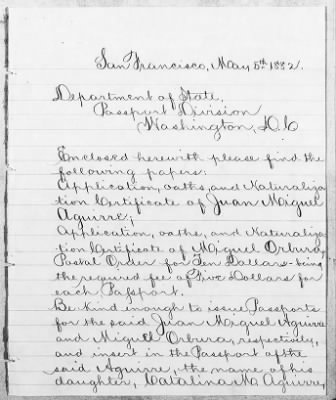 San Francisco, May 5th 1882.
Department of State,
Passport Division
Washington, D.C
Enclosed herewith please find the
following papers:
Application, oaths, and Naturaliza-
tion Certificate of Juan Miguel
Aguirre;
Application, oaths, and Naturaliza-
tion Certificate of Miguel Orbura;
Postal Order for Ten Dollars- being
the required fee of Five Dollars for
each Passport.
Be kind enough to issue Passports
for the said Juan Miguel Aguirre
and Miguel Orbura, respectively,
and insert in the Passport of the
said Aguirre, the name of his
daughter, Catalina M. Aguirre,